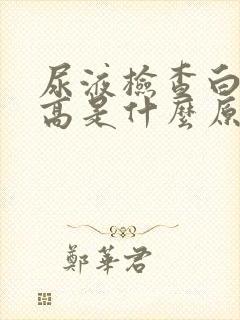 尿液檢查白
高是什麼原
鄭華君